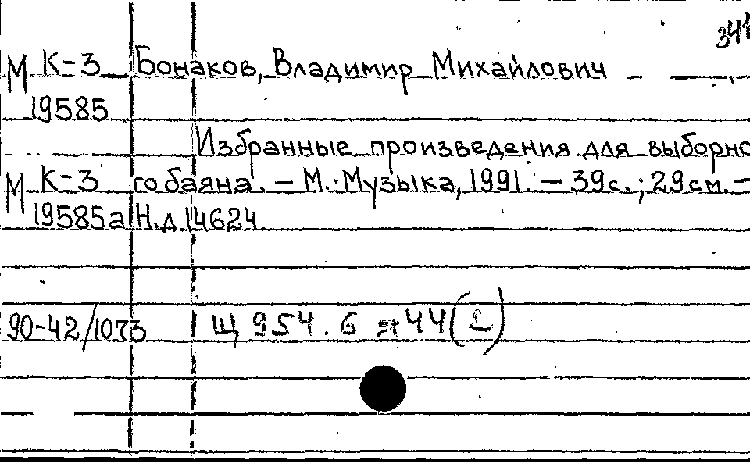 344
М К-3 Бонаков, Владимир Михайлович
19585
Избранные произведения для выборно
М К-3 го баяна. – М.: Музыка, 1991. – 39с.; 29см. –
19585а Н.д. 14624
90-42/1073 Щ 954.6 я44(2)